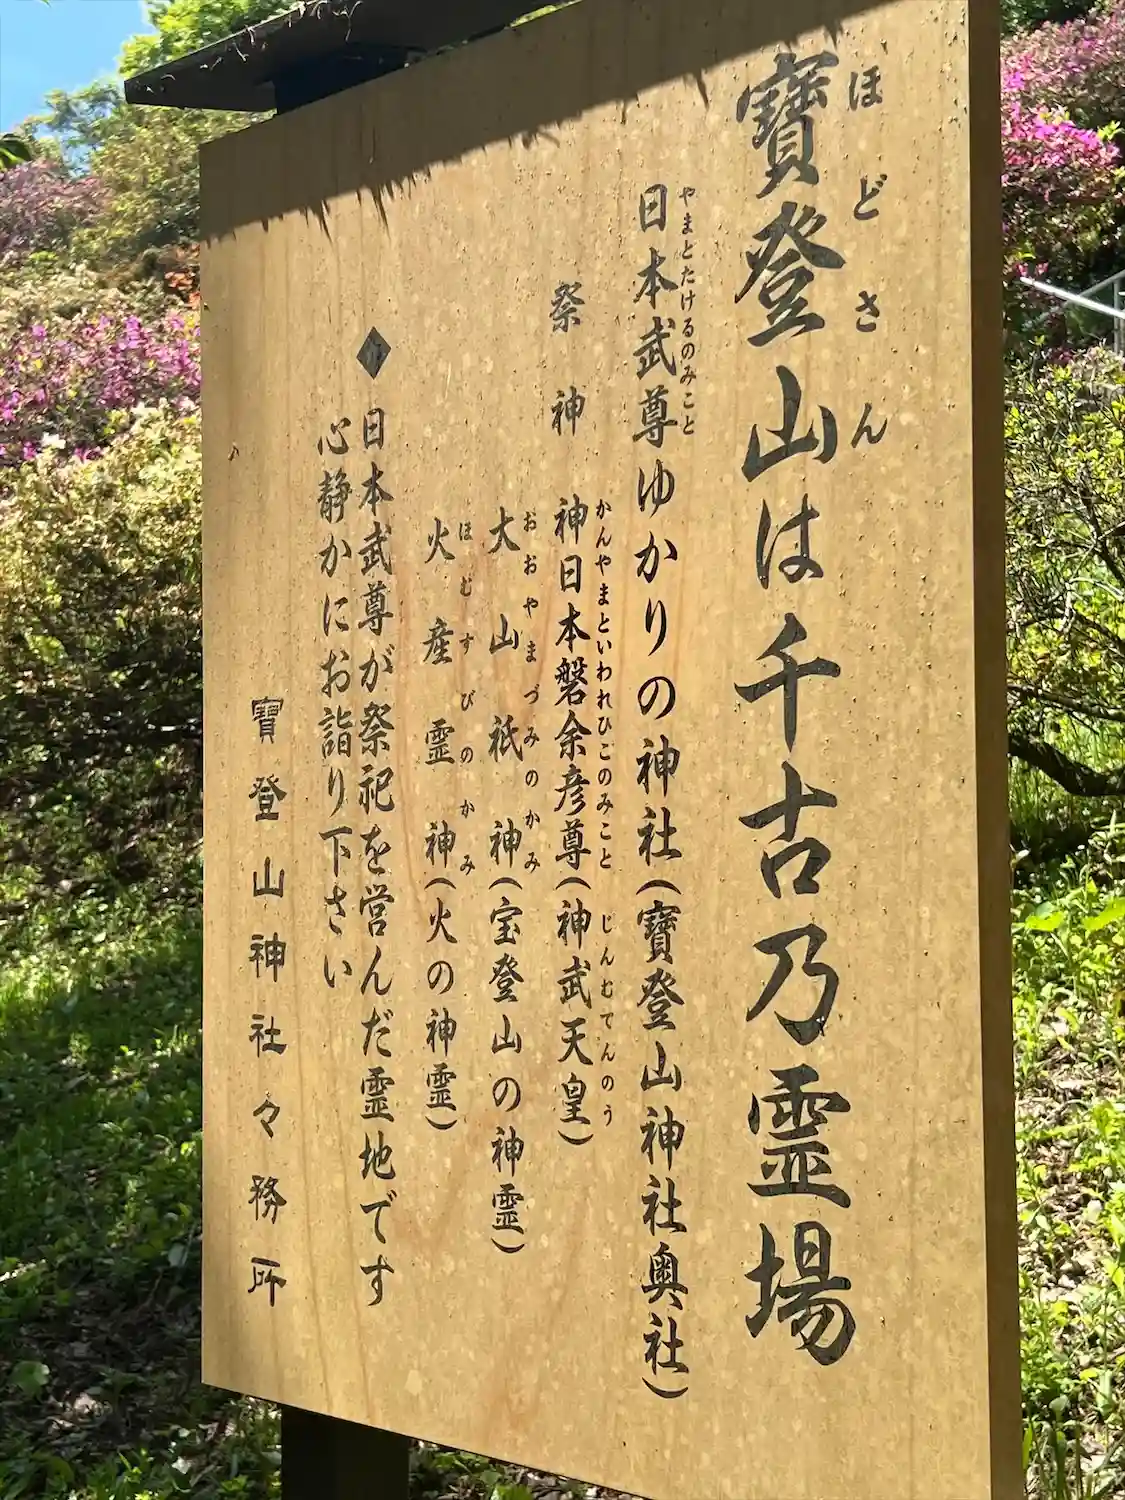 寶登山は千古乃霊場
ほどさん
日本武尊ゆかりの神社(寶登山神社奥社)
やまとたけるのみこと
祭神 神日本磐余彦尊(神武天皇)
かんやまといわれひこのみこと じんむてんのう
大山祇神(宝登山の神霊)
おおやまづみのかみ
火産霊神(火の神霊)
ほむすびのかみ
◆日本武尊が祭祀を営んだ霊地です
心静かにお詣り下さい
寶登山神社々務所